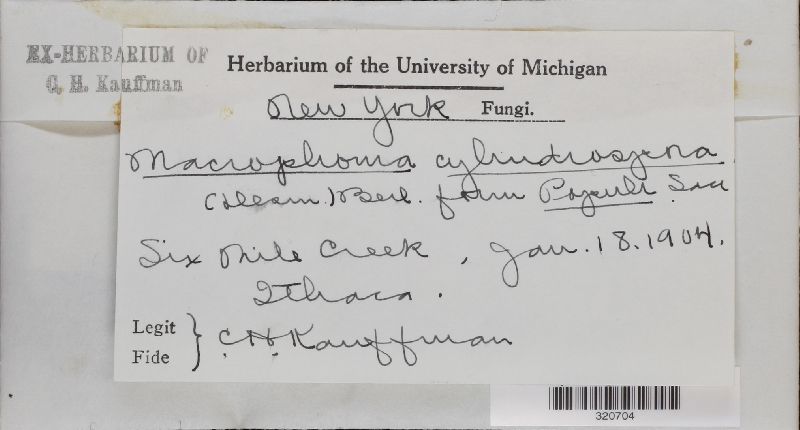 EX-HERBARIUM OF
C. H. Kauffman
Herbarium of the University of Michigan
New York Fungi.
Macrophoma cylindrospora
(Desm.) Berl. form Populi Sacc
Six Mile Creek, Jan. 18. 1904.
Ithaca.
Legit
Fide
C. H. Kauffman
320704